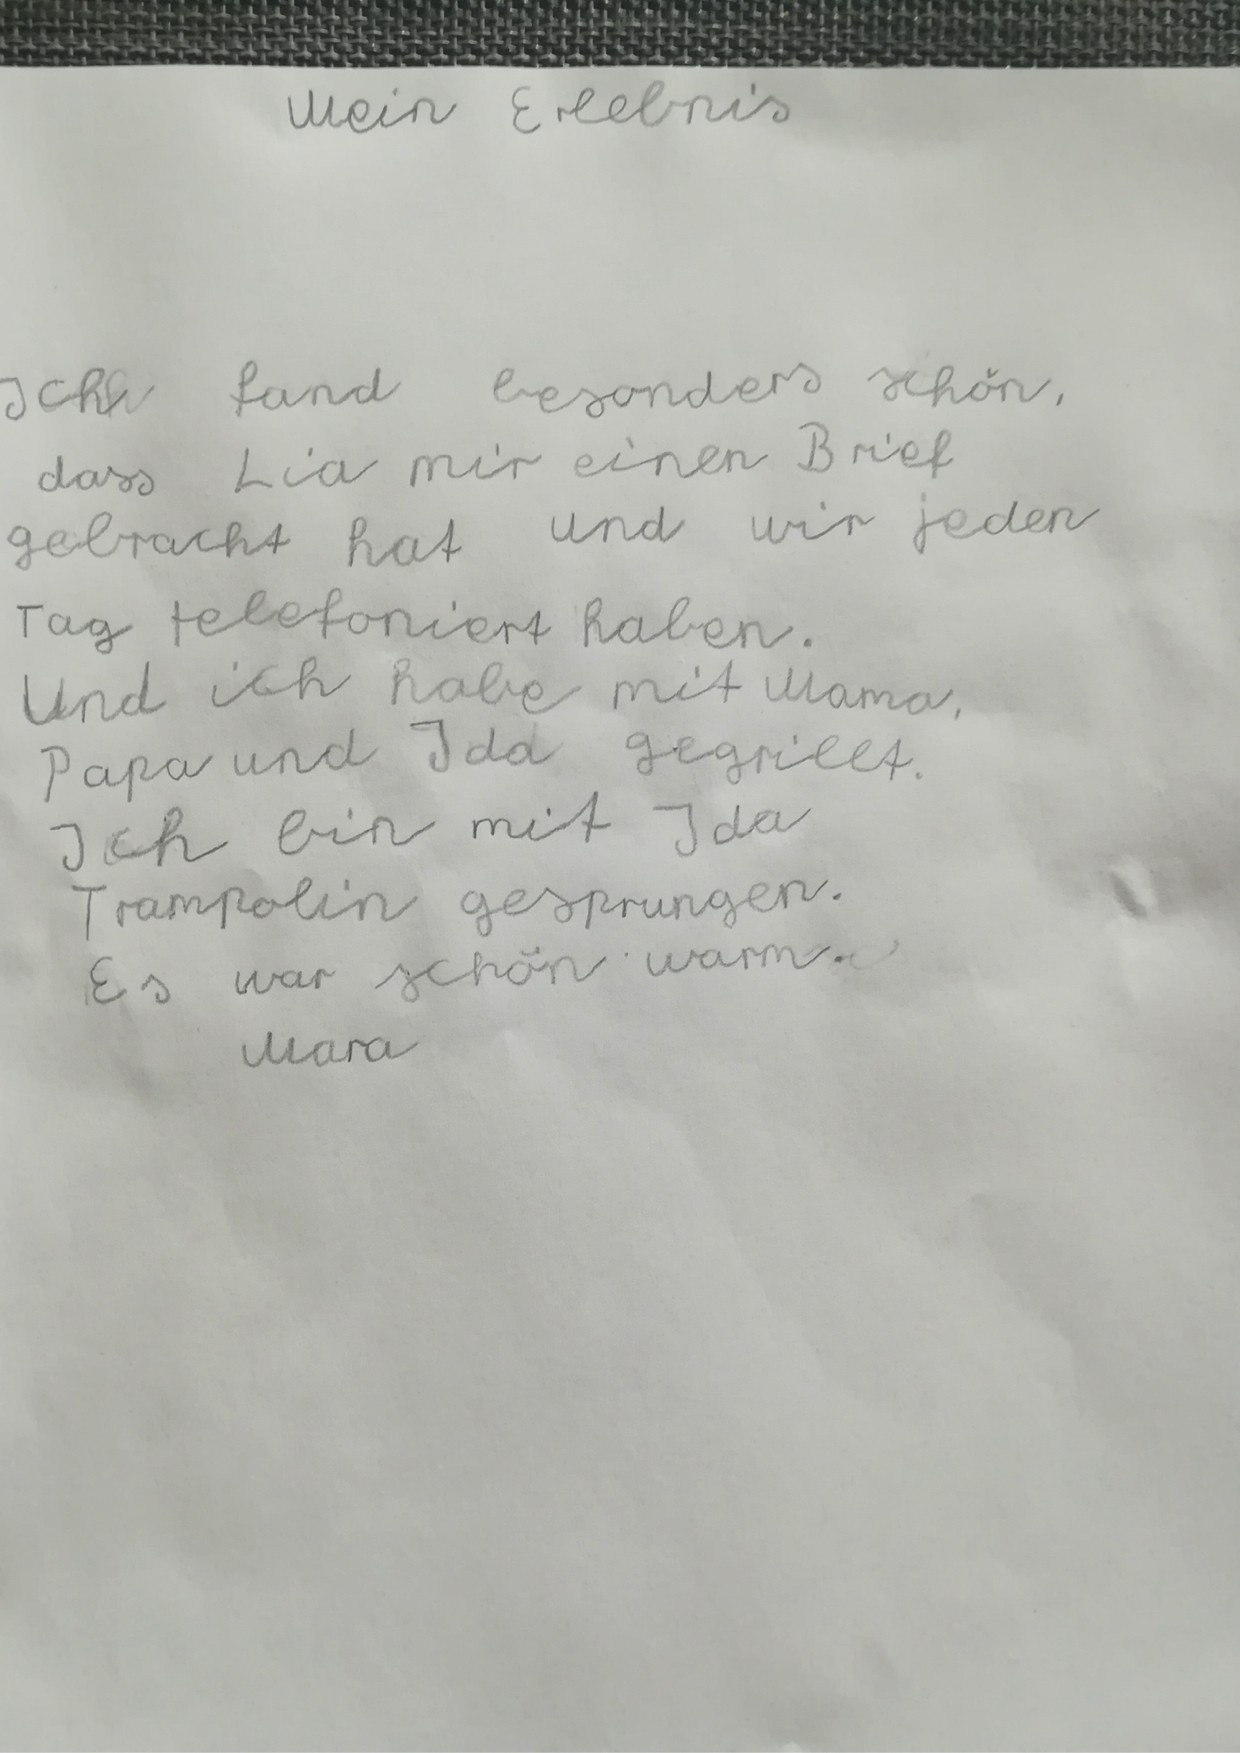 Mein Erlebnis
Ich fand besonders schön,
dass Lia mir einen Brief
gebracht hat und wir jeden
Tag telefoniert haben.
Und ich habe mit Mama,
Papa und Ida gegrillt.
Ich bin mit Ida
Trampolin gesprungen.
Es war schön warm.
Mara